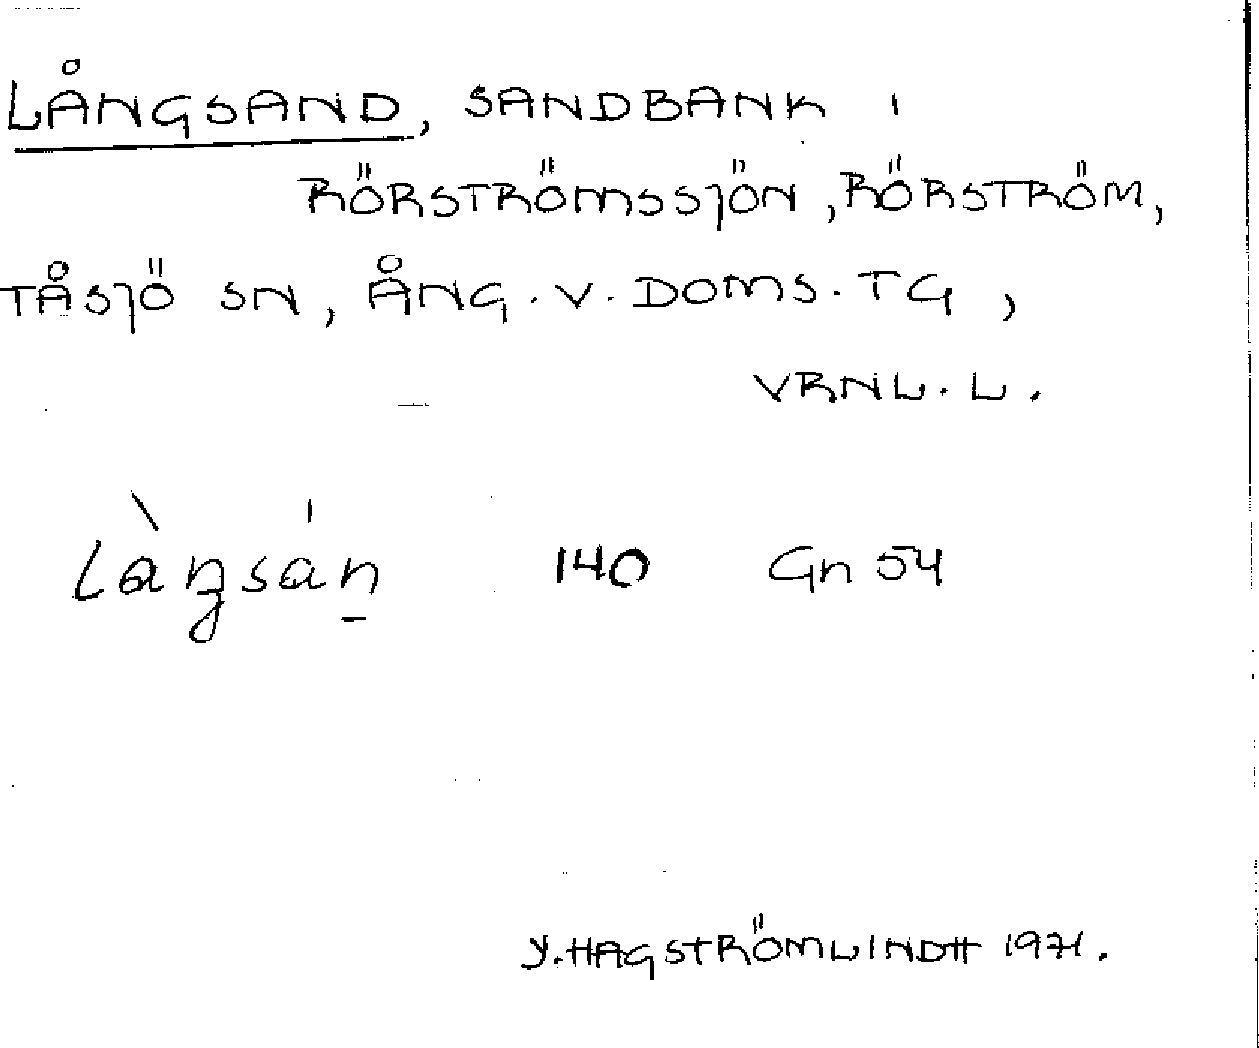 LÅNGSAND, SANDBANK I
RÖRSTRÖMSSJÖN, RÖRSTRÖM,
TÅSJÖ SN, ÅNG. V. DOMS. TG,
VRNL. L.
làŋsán̠ 140 Gn 54
Y. HAGSTRÖMLINDH 1971.